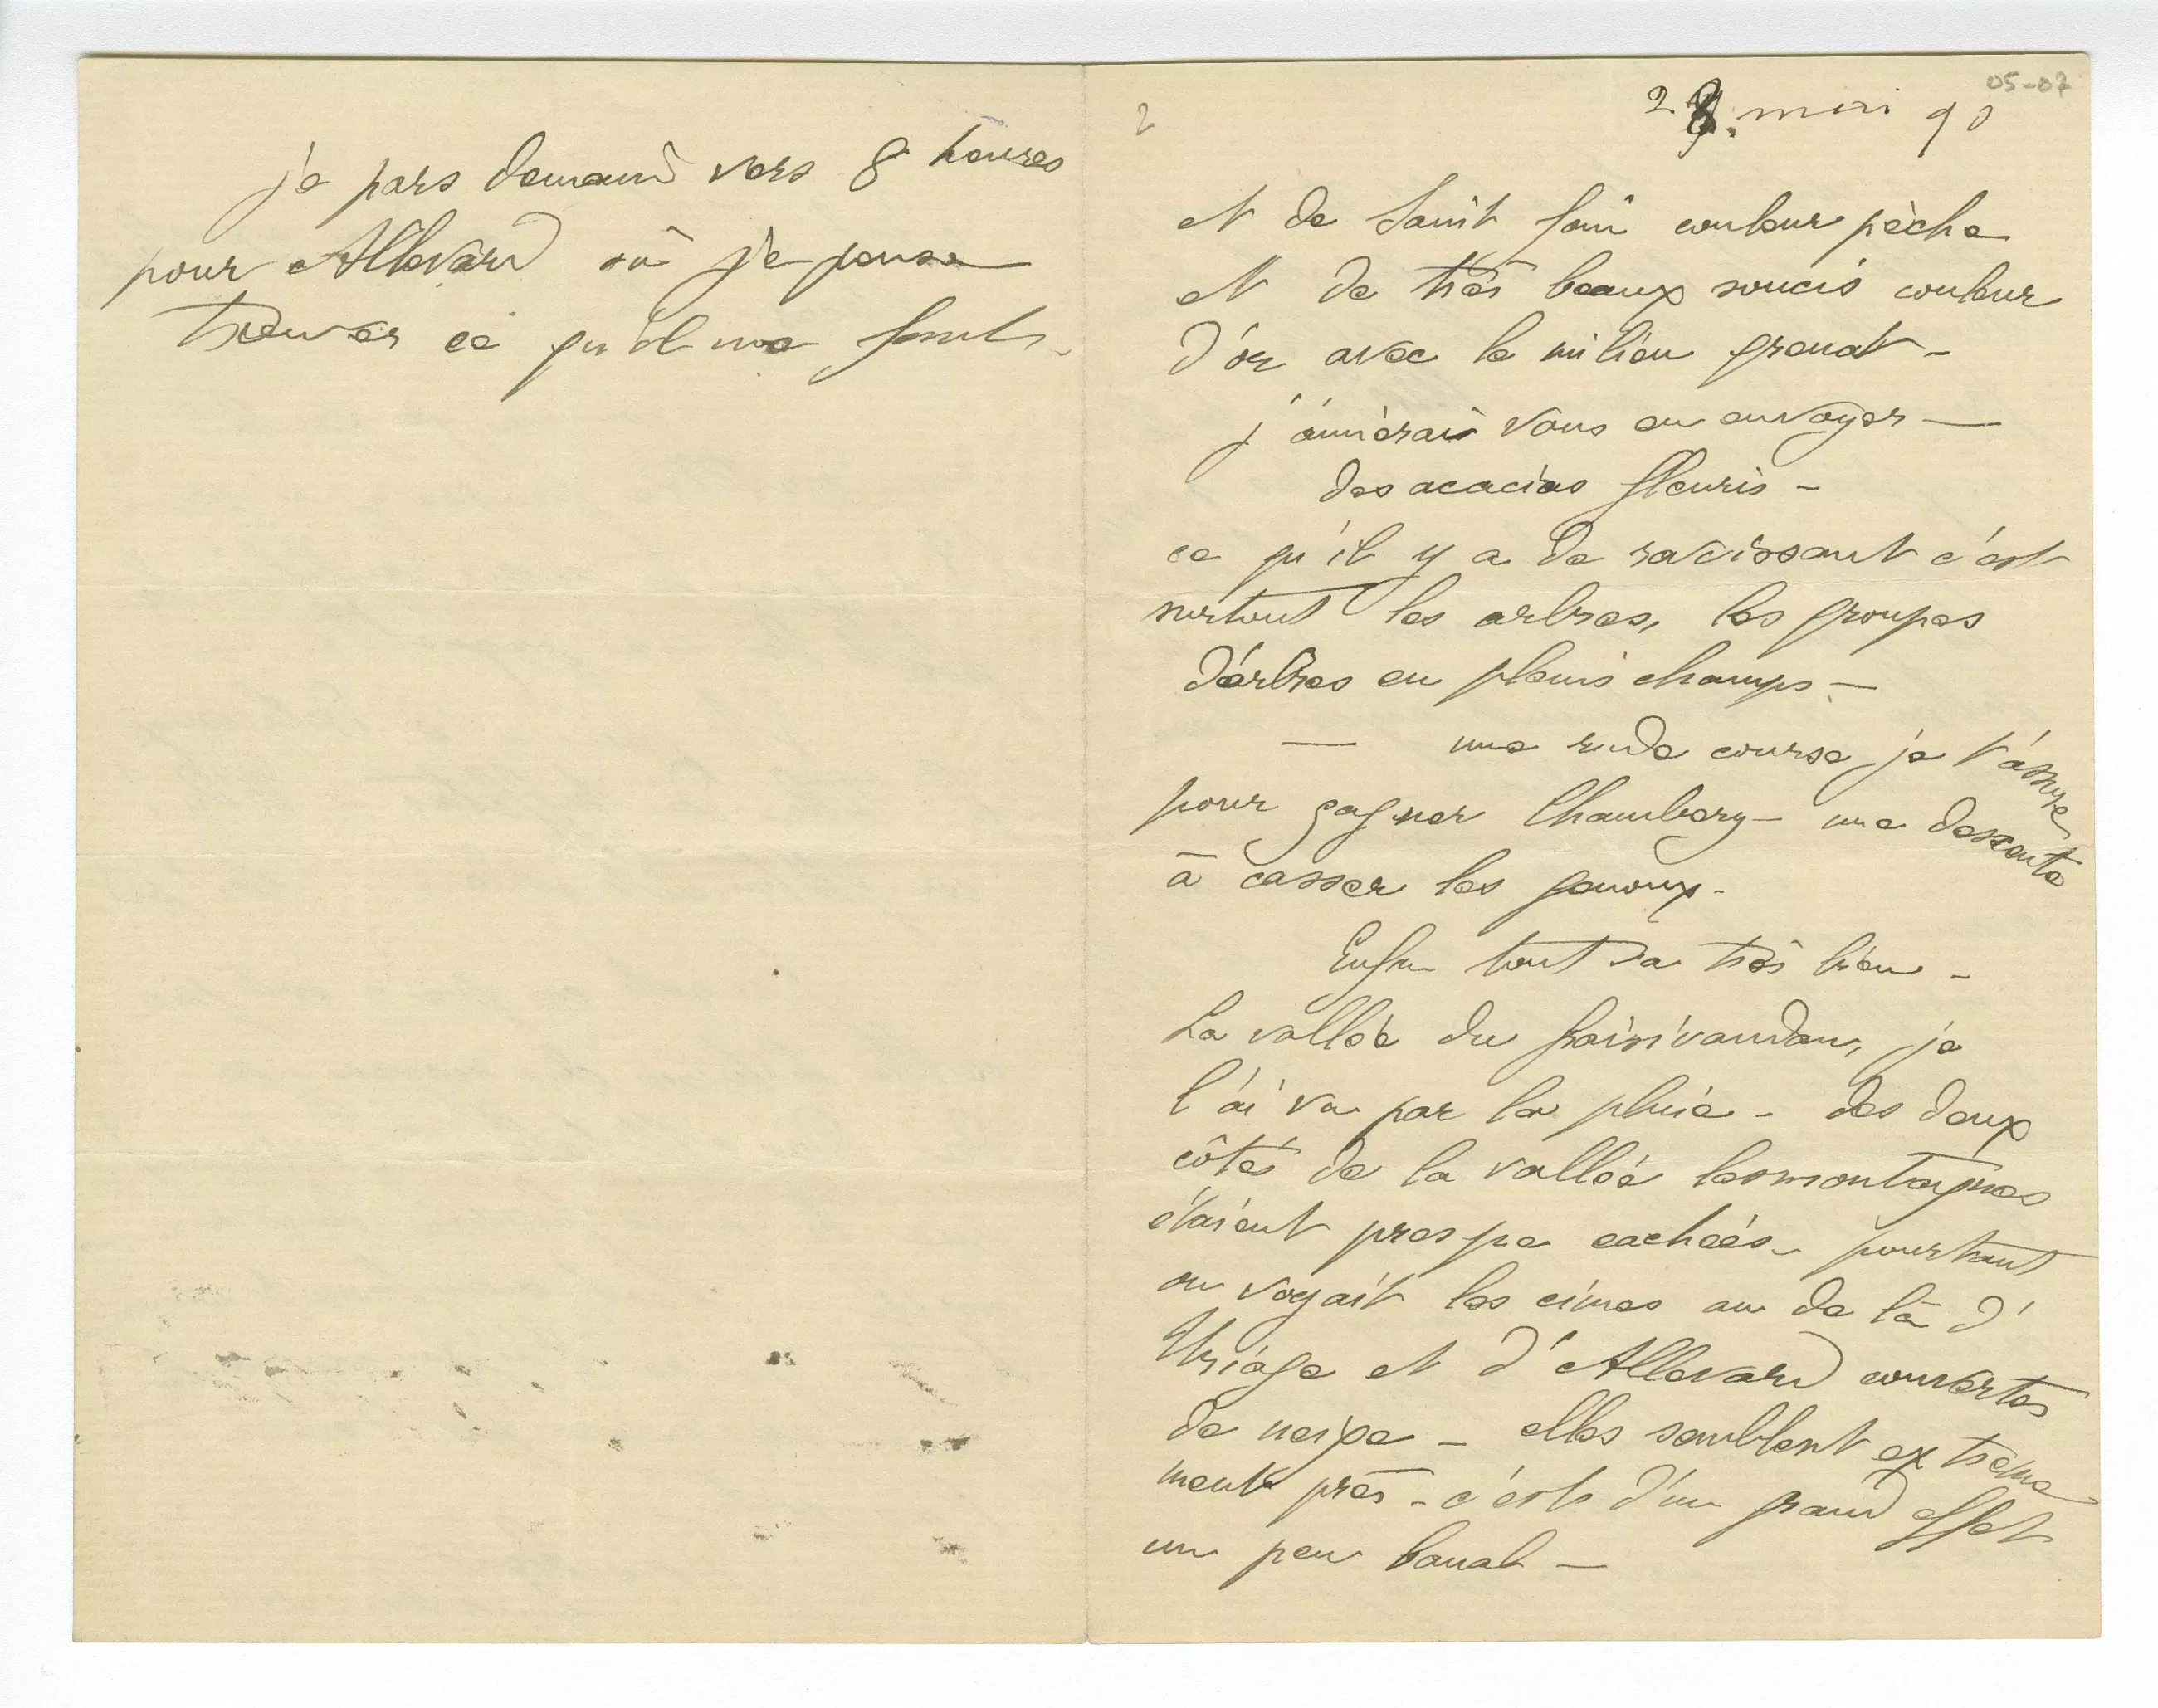 je pars demain vers 8 heures
pour Allevard où je pense
trouver ce qu'il me faut.
2
05-07
28 mai 90
et de Saint foin couleur pèche
et de très beaux soucis couleur
d'or avec le milieu grenat -
j'aimerais vous en envoyer —
des acacias fleuris -
ce qu'il y a de ravissant c'est
surtout les arbres, les groupes
d'arbres en pleins champs -
— une rude course je t'assure
pour gagner Chambery - une descente
à casser les genoux -
Enfin tout va très bien -
La vallée du Graisivaudan, je
l'ai vu par la pluie - des deux
côtés de la vallée les montagnes
étaient presque cachées - pourtant
on voyait les cimes au de là d'
Uriage et d'Allevard couvertes
de neige - elles semblent extreme
ment près - c'est d'un grand effet
un peu banal —